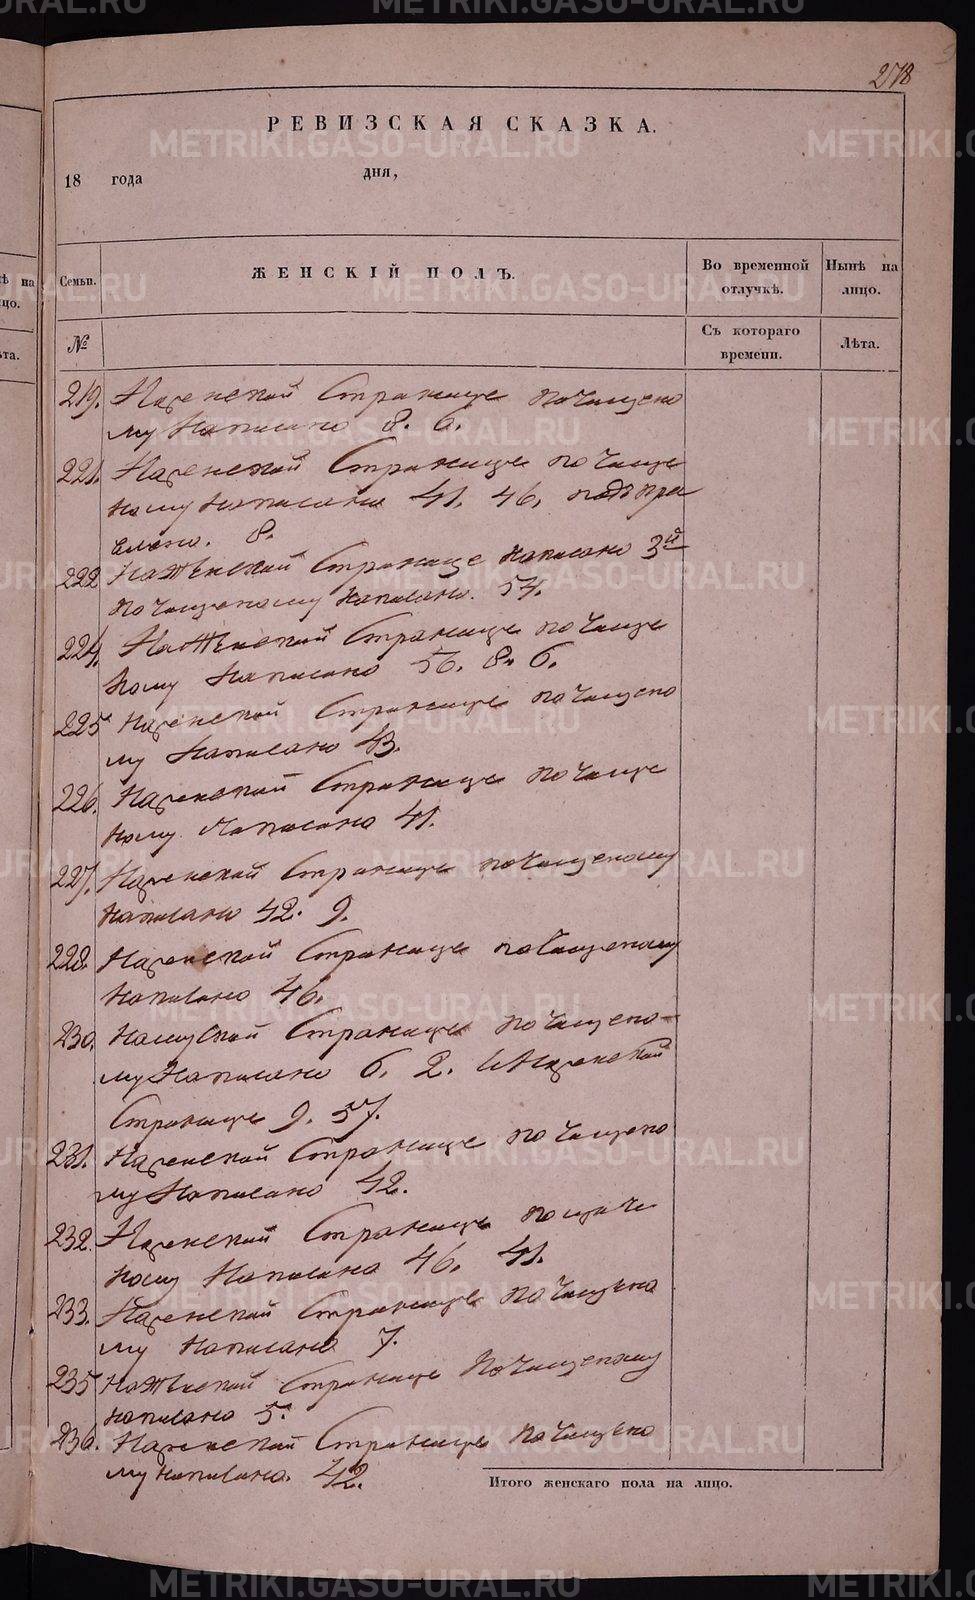 278
РЕВИЗСКАЯ СКАЗКА.
18 года дня,
Семьи. ЖЕНСКІЙ ПОЛЪ. Во временной отлучкѣ. Нынѣ на лицо.
№ Съ котораго времени. Лѣта.
219. На женской Странице почищено
му Написано 8. 6.
221. На женской Странице почище
ному написано 41. 46. подпра
влено. 8.
222 На женской Странице написано 3й
почищеному написано. 54.
224. На женской Странице почище
ному Написано 56. 8. 6.
225 На женской Странице почищено
му Написано 43.
226. На женской Странице почище
ному Написано 41.
227. На женской Странице почищеному
написано 42. 9.
228. На женской Странице почищеному
написано 46.
230. На муской Странице почищено-
му Написано 6. 2. и На женской
Странице 9. 57.
231. На женской Странице почищено
му Написано 42.
232. На женской Странице
ному Написано 46. 41.
233. На женской Странице почищено
му Написано 7.
235 На женской Странице Почищеному
написано 5.
236. На женской Странице почищено
му написано. 42.
Итого женскаго пола на лицо.
ѣ на
цо.
ѣта.
METRIKI.GASO-URAL.RU